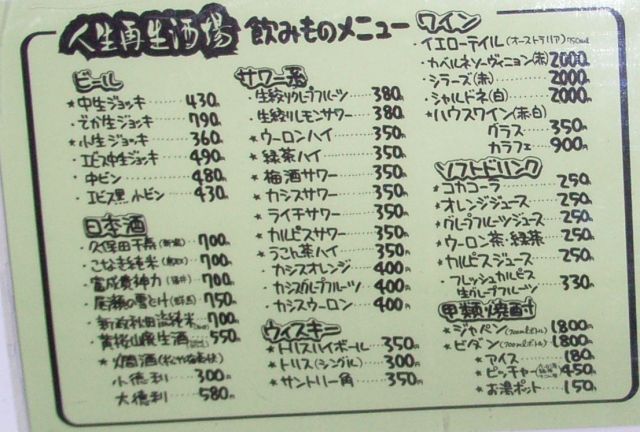 人生再生酒場 飲みものメニュー
ビール
★中生ジョッキ 430円
・でか生ジョッキ 790円
★小生ジョッキ 360円
・エビス中生ジョッキ 490円
・中ビン 480円
・エビス黒 小ビン 430円
日本酒
・久保田千寿(新潟) 700円
・こなき純米(鳥取) 700円
・富成喜神力 700円
・尾瀬の雪どけ(群馬) 750円
・新政秋田流純米 700円
・黄桜山廃生酒 550円
★燗酒
小徳利 300円
大徳利 580円
サワー系
・生絞りグレープフルーツ 380円
・生絞りレモンサワー 380円
★ウーロンハイ 350円
★緑茶ハイ 350円
★梅酒サワー 350円
★カシスサワー 350円
★ライチサワー 350円
★カルピスサワー 350円
★うこん茶ハイ 350円
・カシスオレンジ 400円
・カシスグレプフルーツ 400円
・カシスウーロン 400円
ウィスキー
★トリスハイボール 350円
・トリス(シングル) 300円
★サントリー角 350円
ワイン
・イエローテイル(オーストラリア)750ml
・カベルネソーヴィニョン(赤) 2000円
・シラーズ(赤) 2000円
・シャルドネ(白) 2000円
★ハウスワイン(赤・白)
グラス 350円
カラフェ 900円
ソフトドリンク
★コカコーラ 250円
★オレンジジュース 250円
・グレプフルーツジュース 250円
★ウーロン茶・緑茶 250円
★カルピスジュース 250円
・フレッシュカルピス
生グレプフルーツ 330円
甲類焼酎
★ジャパン(700mlボトル) 1800円
★ビダン(700mlボトル) 1800円
★アイス 180円
★ピッチャー 450円
★お湯ポット 150円